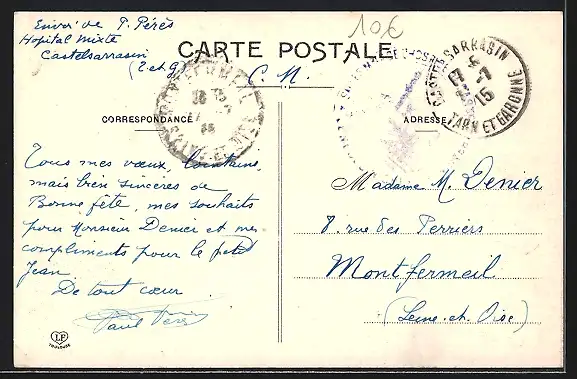 Envoi de P. Pérès
Hôpital Mixte
Castelsarrasin
(T. et G.)
10€
CARTE POSTALE
C. M.
CORRESPONDANCE
ADRESSE
CASTELSARRASIN
17 15
TARN ET GARONNE
MONTFERMEIL
SEINE-ET-OISE
Tous mes vœux, lointains,
mais bien sincères de
Bonne fête, mes souhaits
pour Monsieur Denier et mes
compliments pour le petit
Jean.
De tout cœur
Paul Pérès
Madame M. Denier
7. rue des Perriers
Montfermeil
(Seine-et-Oise)
LF
TOULOUSE